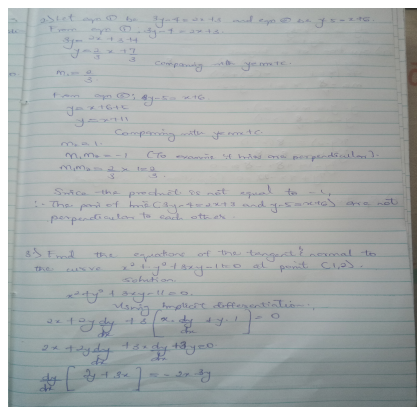 2) Let eqn ① be 3y-4=2x+3 and eqn ② as y-5=x+6
From eqn ①, 3y-4=2x+3
3y=2x+3+4
y=2/3 x+7/3
comparing with y=mx+c.
m₁=2/3
From eqn ②; y-5=x+6
y=x+6+5
y=x+11
Comparing with y=mx+c
m₂=1.
m₁m₂=-1 (To examine if lines are perpendicular).
m₁m₂=2/3 x 1=2/3.
Since the product is not equal to -1,
∴ The pair of lines (3y-4=2x+3 and y-5=x+6) are not
perpendicular to each other.
3) Find the equations of the tangent & normal to
the curve x²+y²+3xy-11=0 at point (1,2).
Solution
x²+y²+3xy-11=0.
Using Implicit differentiation,
2x+2y dy/dx+3[x.dy/dx+y.1]=0
2x+2y dy/dx+3x dy/dx+3y=0
dy/dx[2y+3x]=-2x-3y